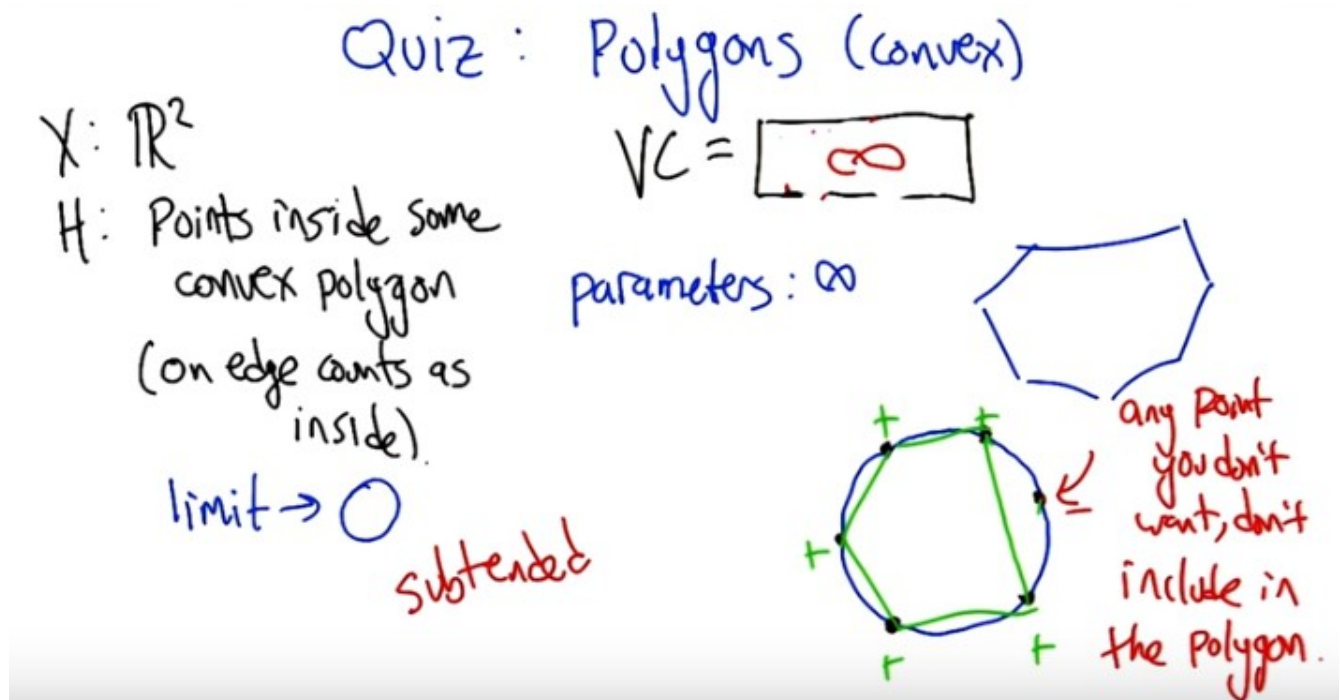 Quiz : Polygons (convex)
X: ℝ²
H: Points inside some
convex polygon
(on edge counts as
inside).
limit → ○
VC = ∞
parameters: ∞
subtended
+ +
+
+ +
-
any point
you don't
want, don't
include in
the polygon.